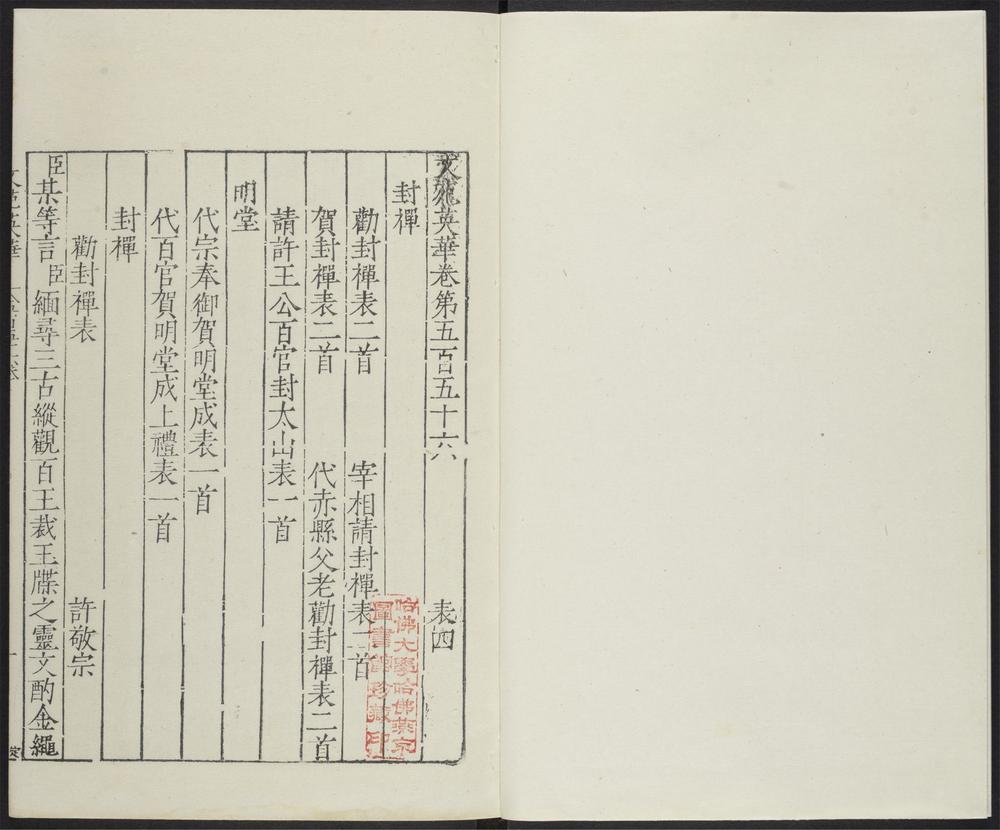 文苑英華卷第五百五十六　表四
封禪
勸封禪表二首　宰相請封禪表二首
賀封禪表二首　代赤縣父老勸封禪表二首
請許王公百官封太山表一首
明堂
代宗奉御賀明堂成表一首
代百官賀明堂成上禮表一首
封禪
勸封禪表　許敬宗
臣某等言臣緬尋三古縱觀百王裁玉牒之靈文酌金繩
哈佛大學哈佛燕京
圖書館珍藏印